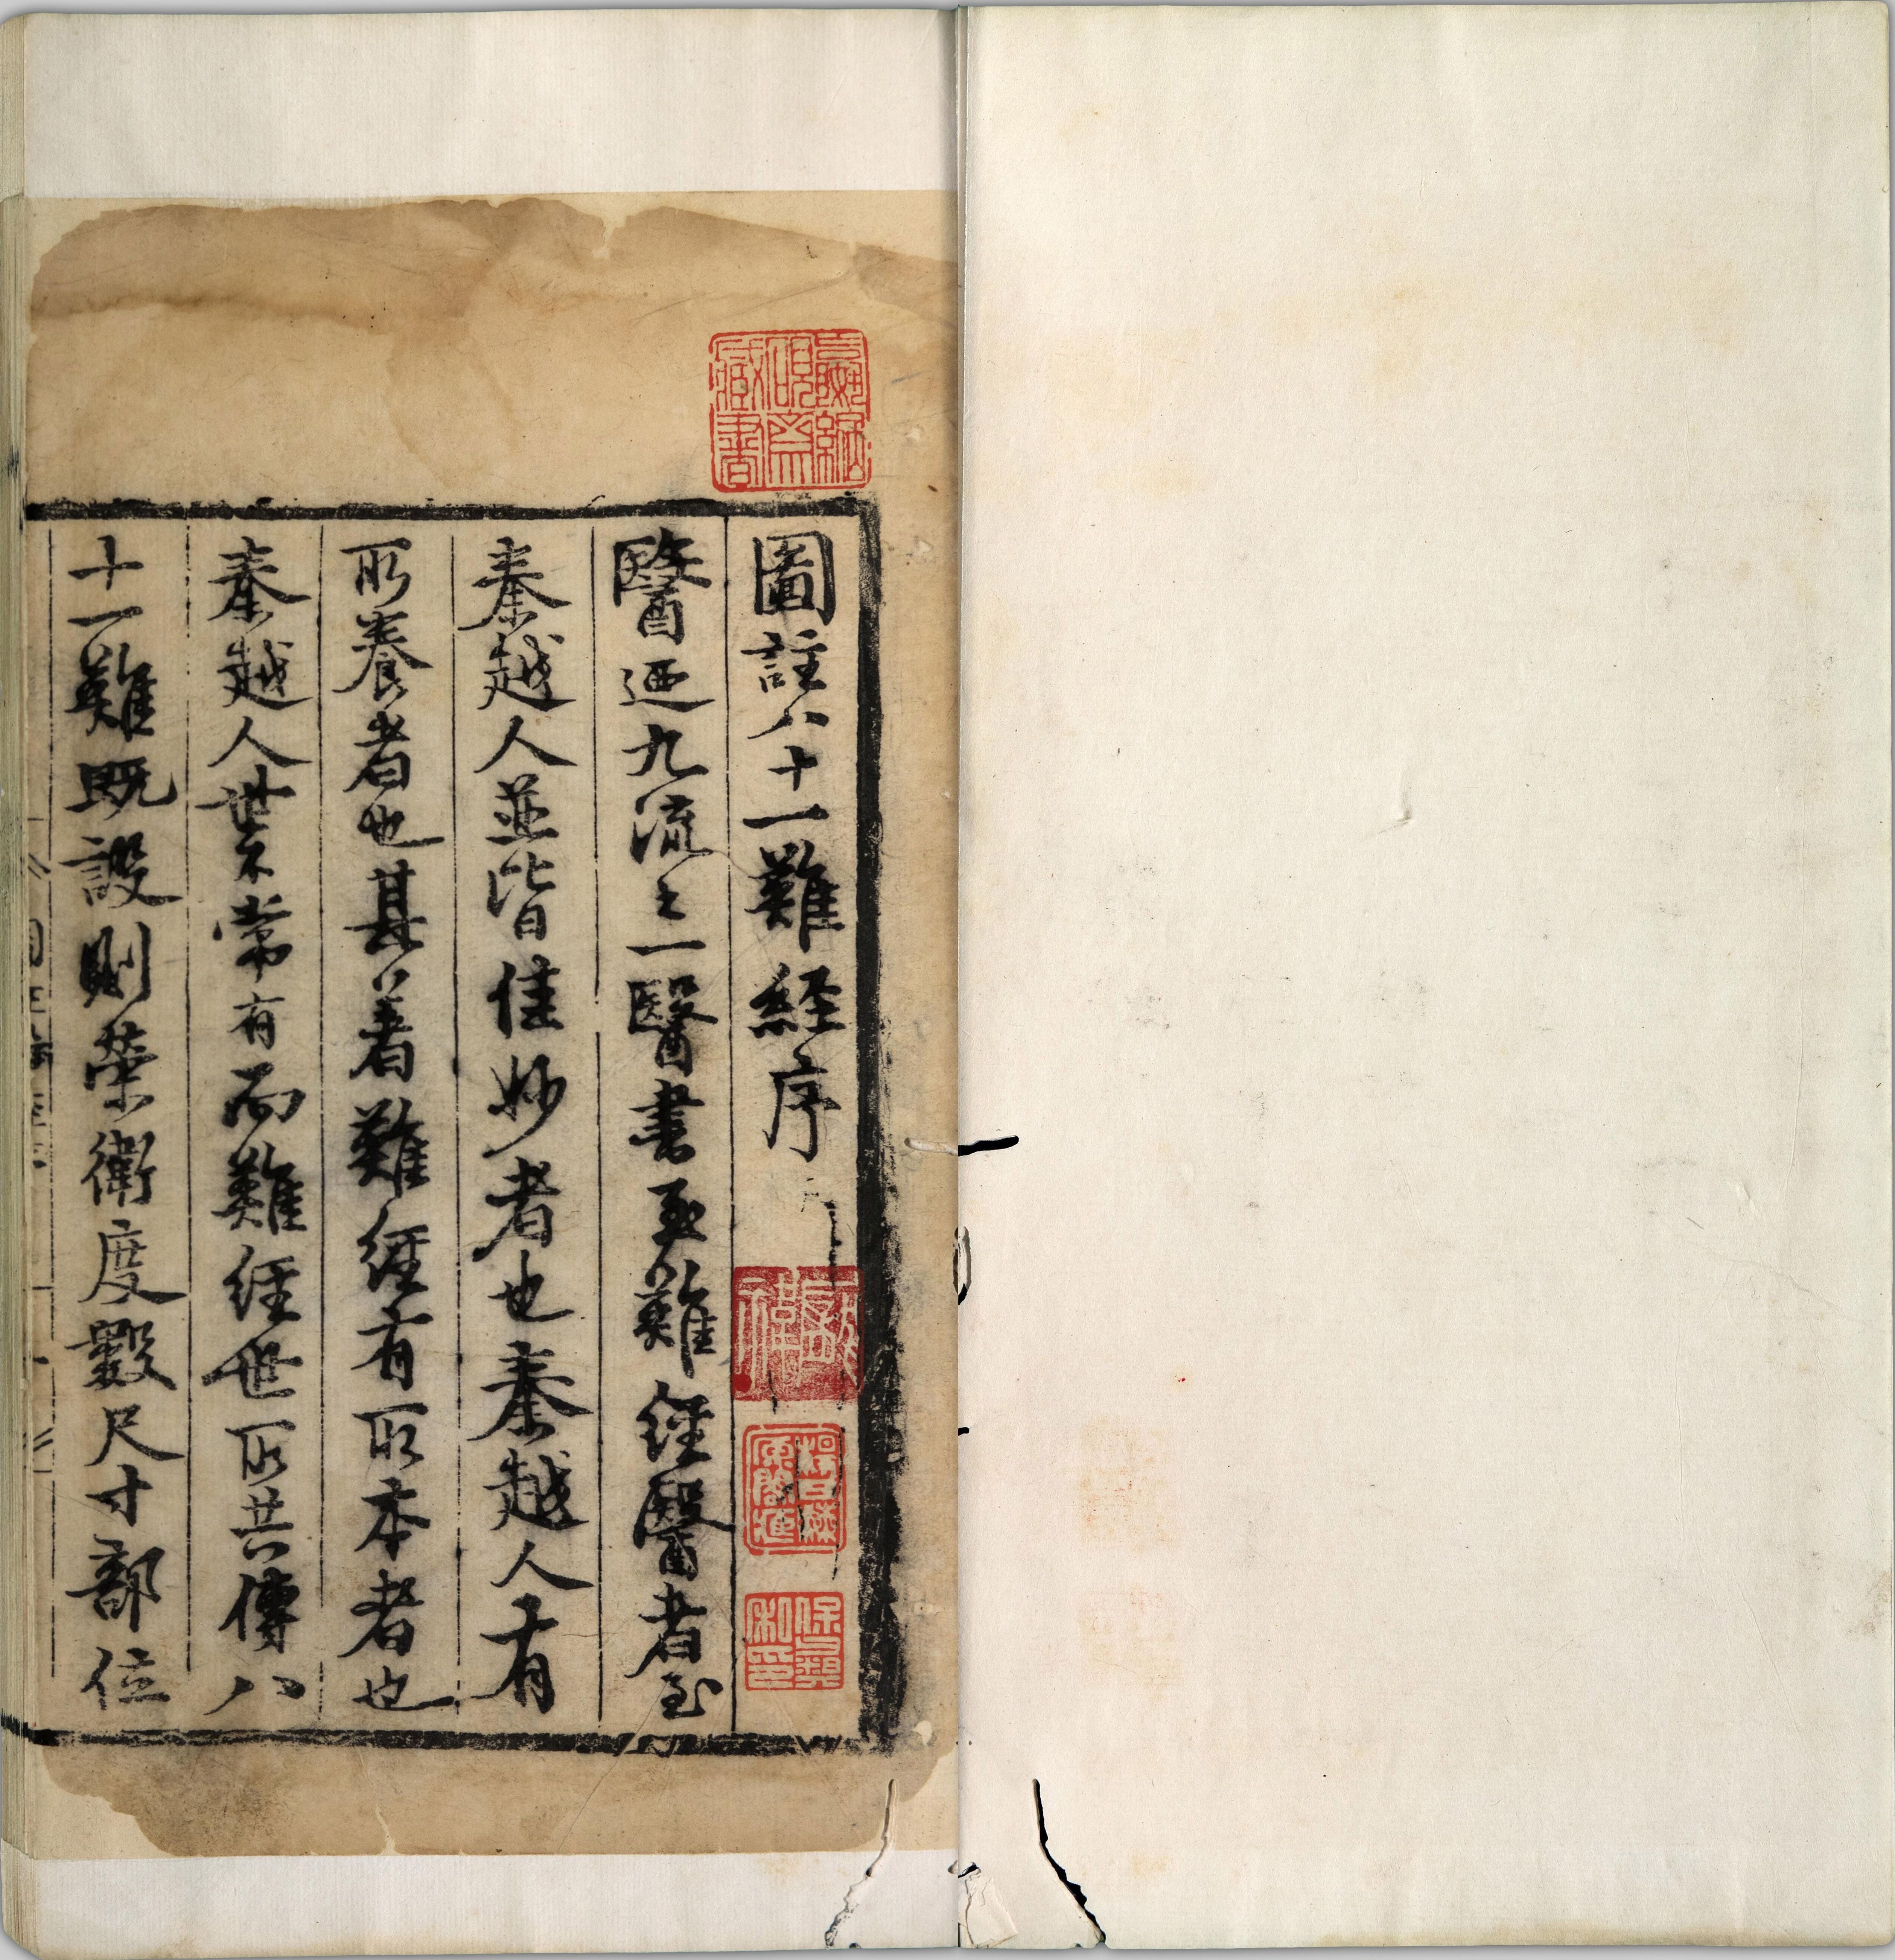 圖註八十一難經序
醫迺九流之一醫書至難經醫者至
秦越人並皆佳妙者也秦越人有
所養者也甚著難經有所本者也
秦越人世不常有而難經世所共傳八
十一難既設則榮衛度數尺寸部位
藏書